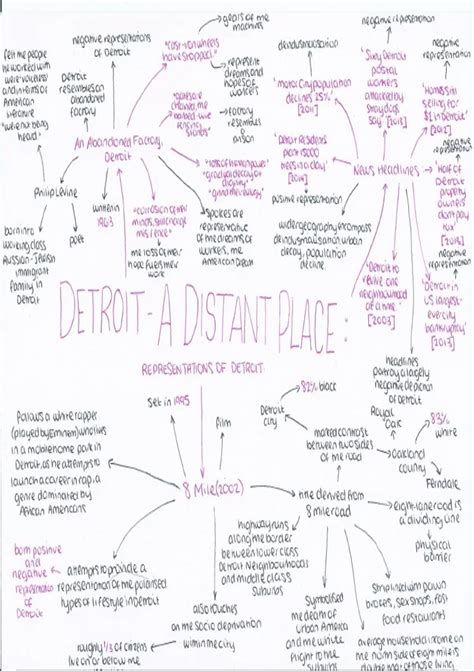 goals of the
machines
negative representations
of Detroit
"cast-iron wheels
have stopped"
represent
dreams and
hopes of
workers
felt the people
he worked with
were voiceless
and in terms of
American
literature
"were not being
heard"
Detroit
resembles an
abandoned
factory
factory
resembles a
prison
An Abandoned Factory,
Detroit
"loss of human power"
"gradual decay of
dignity"
Philip Levine
written in
1963
"corrosion of their
minds, still charge
this fence"
born into
working class
Russian-Jewish
immigrant
family in
Detroit
poet
the loss of their
hope fuels their
work
spokes are
representative
of the dreams of
workers, the
American Dream
negative representation
deindustrialisation
"Motor City population
declines 25%"
[2011]
"Sixty Detroit
postal
workers
attacked by
stray dogs
say" [2013]
negative
representation
"Homes still
selling for
$1 in Detroit"
[2012]
negative
representation
"Detroit residents
plant 15000
trees in a day"
[2014]
News Headlines
"Half of
Detroit
property
owners
don't pay
tax"
[2013]
positive representation
wider geography encompass
deindustrialisation, urban
decay, population
decline
negative
representation
"Detroit to
thrive one
neighbourhood
at a time"
[2003]
"Detroit in
US largest-
ever city
bankruptcy"
[2013]
DETROIT - A DISTANT PLACE:
REPRESENTATIONS OF DETROIT
headlines
portray a largely
negative depiction
of Detroit
82% black
Detroit
city
set in 1995
film
marked contrast
between two sides
of the road
Royal
Oak
83%
white
Oakland
county
Ferndale
follows a white rapper
(played by Eminem) who lives
in a mobile home park in
Detroit, as he attempts to
launch a career in rap, a
genre dominated by
African Americans
8 Mile (2002)
title derived from
8 mile road
eight-lane road is
a dividing line
physical
barrier
highway runs
along the border
between lower class
Detroit Neighbourhoods
and middle class
suburbs
both positive
and
negative
representation
of Detroit
attempts to provide a
representation of the polarised
types of lifestyle in Detroit
also touches
on the socio deprivation
within the city
roughly 1/3 of citizens
live on or below the
Symbolised
the dream of
urban America
and the white
flight to the
suburbs
strip lined with pawn
brokers, sex shops, fast
food restaurants
average household income on
the north side eight miles is